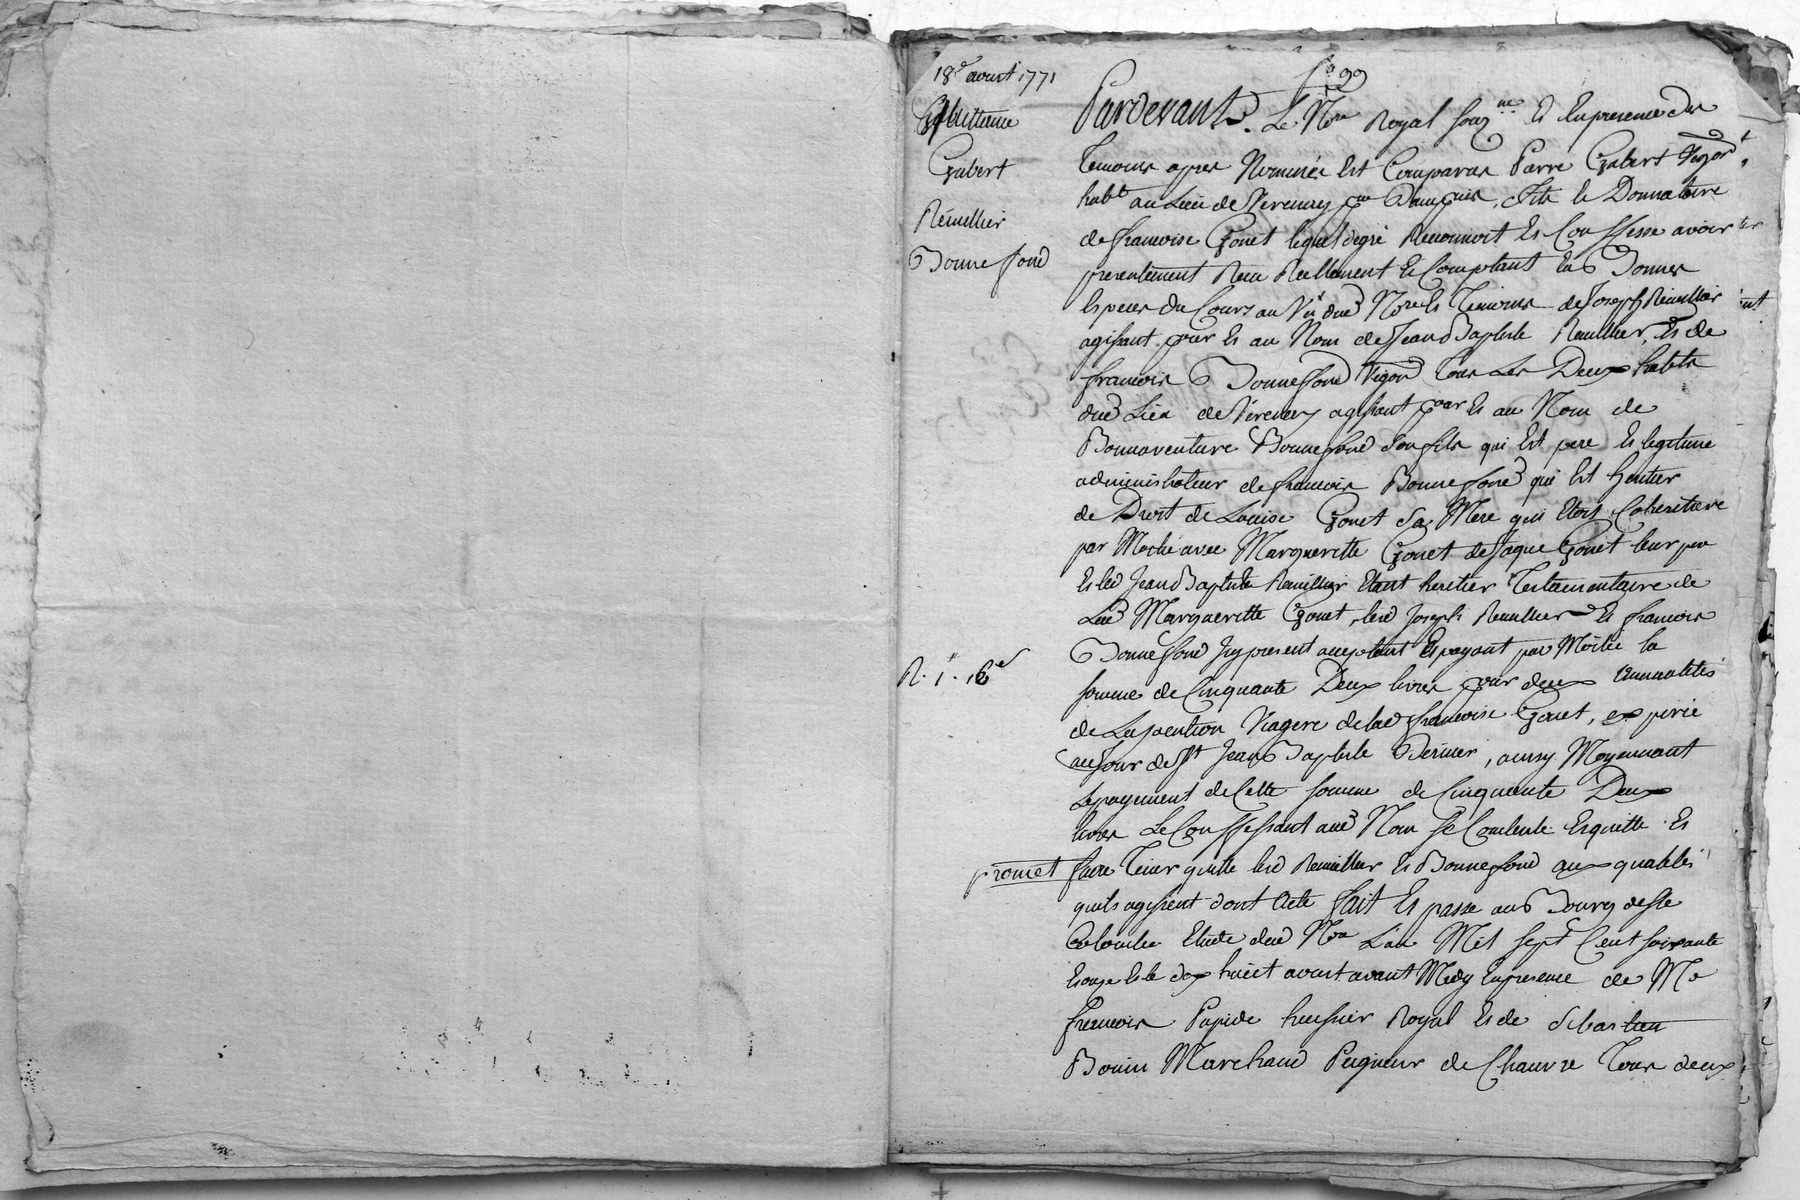 18e aoust 1771
Quittance
Gabert
Rémillier
Bonnefond
fo 99
Pardevant Le Nre Royal souzne Et En presence des
Temoins apres Nommés Est Comparus Pierre Gabert Vigon
habt au Lieu de Verenay en Dauphiné, fils Et Donnataire
de francoise Gonet lequel degré Reconnoit Et Confesse avoir
presentement Receu Reellement Et Comptant En Bonnes
Especes du Cours au Vu dud Nre Et Temoins de Joseph Remillier
agissant pour Et au Nom de Jean Baptiste Remillier, Et de
francois Bonnefond Vigon tous Les Deux habts
dud Lieu de Verenay agissant pour Et au Nom de
Bonnaventure Bonnefond Son fils qui Est pere Et legitime
administrateur de francois Bonnefond qui Est heritier
de Droit de Louise Gonet Sa Mere qui Etoit Coheritiere
par Moitié avec Margueritte Gonet de Jaque Gonet leur pere
Et led Jean Baptiste Remillier Etant heritier Testamentaire de
Lad Margueritte Gonet, led Joseph Remillier Et francois
Bonnefond Icy present acceptant Et payant par Moitié la
R. 1. 16s
somme de Cinquante Deux livres pour deux annualités
de La pention Viagere de lad francoise Gonet, expirée
au Jour de St Jean Baptiste Dernier, aussy Moyennant
Le payement de Cette somme de Cinquante Deux
livres Le Confessant aud Nom Se Contente Et quitte Et
promet faire Tenir quitte led Remillier Et Bonnefond aux qualités
quils agissent dont acte fait Et passé au Bourg de Ste
Colombe Etude dud Nre L'an Mil sept Cent soixante
Et onze Et le dix huict aoust avant Midy En presence de Me
francois Papide huissier Royal Et de Sebastien
Bonin Marchand Peigneur de Chanvre Tous deux